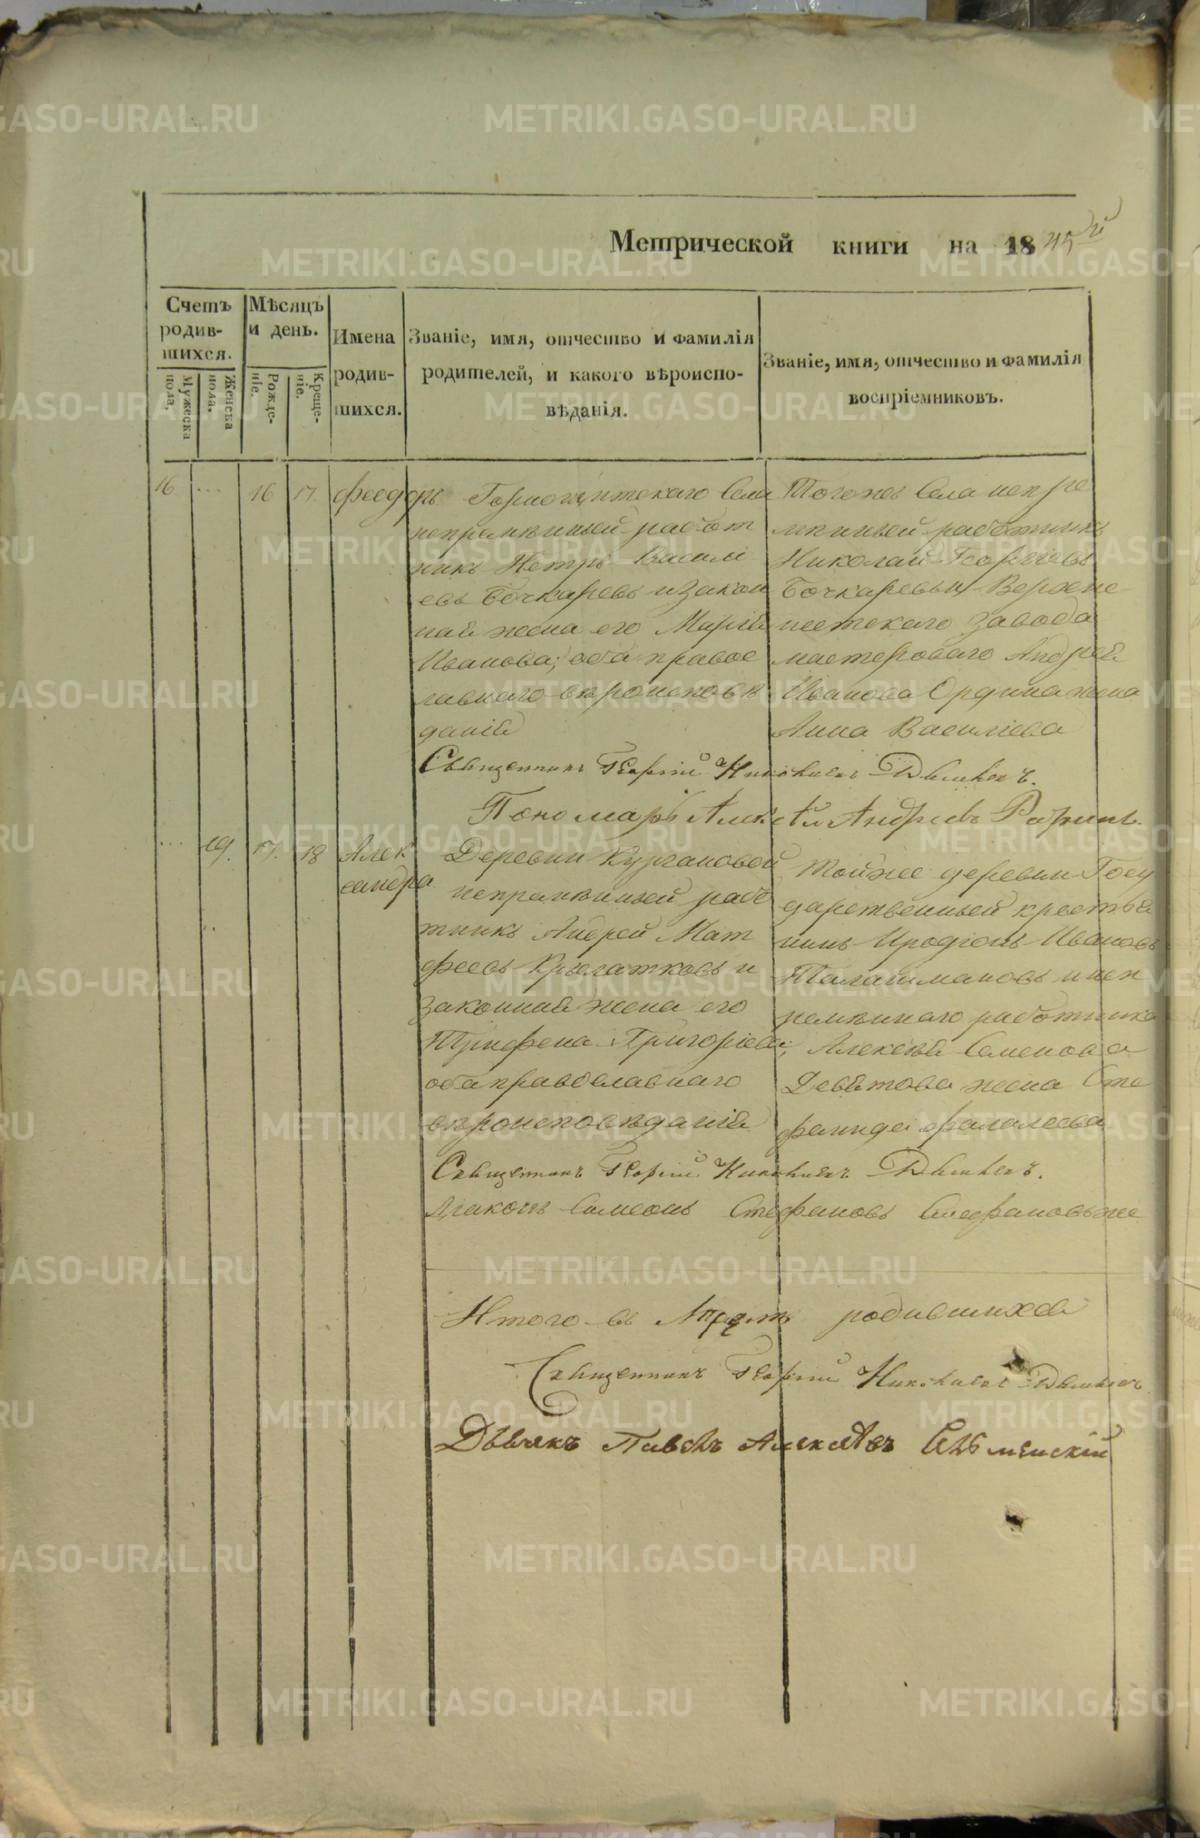 Метрической книги на 1845й
Счетъ родив-шихся.
Мужеска пола.
Женска пола.
Мѣсяцъ и день.
Рожде-ніе.
Креще-ніе.
Имена родив-шихся.
Званіе, имя, отчество и фамилія
родителей, и какого вѣроиспо-
вѣданія.
Званіе, имя, отчество и фамилія
воспріемниковъ.
16 ... 16 17 Феодоръ
Горнощитскаго Села
непремѣнный работ
никъ Петръ Василі
евъ Бочкаревъ и закон
ная жена его Марія
Иванова; оба правос
лавнаго вѣроисповѣ
данія
Тогожъ Села непре
мѣнный работникъ
Николай Георгіевъ
Бочкаревъ и Верхне
исетскаго завода
мастероваго Андрей
Иванова Ордина жена
Анна Василіева
Священникъ Георгій Николаевъ
Пономарь Алексѣй Андреевъ
... 19. 17. 18 Алек
сандра
Деревни Кургановой
непремѣнный рабо
тникъ Андрей Мат
феевъ Крылатковъ и
законная жена его
Трифена Григоріева;
оба православнаго
вѣроисповѣданія
Тойже деревни Госу
дарственный крестья
нинъ Иродіонъ Ивановъ
Талашмановъ и неп
ремѣннаго работника
Алексѣя Семенова
Девятова жена Сте
фанида Фалалеева
Священникъ Георгій Николаевъ
Діаконъ Симеонъ Стефановъ
Итого въ Апрѣлѣ родившихся
Священникъ Георгій Николаевъ
Дьячекъ Павелъ Алексѣевъ
METRIKI.GASO-URAL.RU